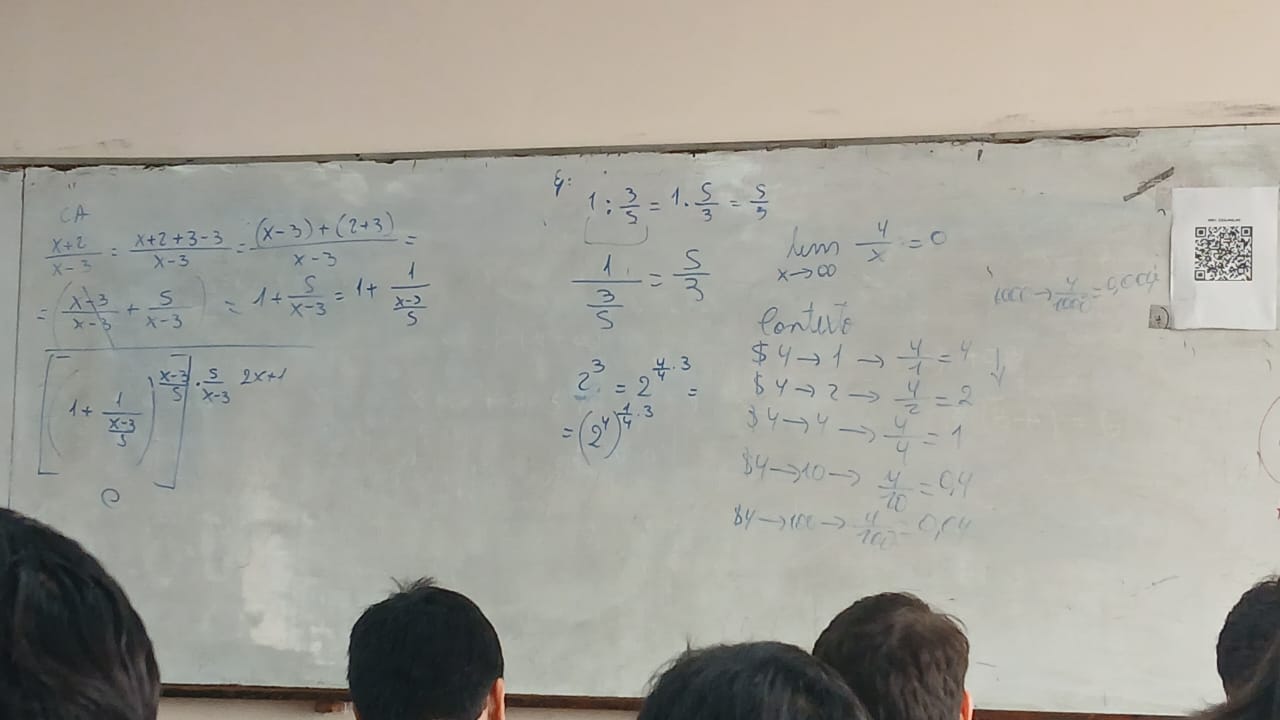 CA
x+2/x-3 = x+2+3-3/x-3 = (x-3)+(2+3)/x-3 =
= (x-3/x-3 + 5/x-3) = 1+ 5/x-3 = 1+ 1/(x-3/5)
[(1+ 1/(x-3/5))^(x-3/5)]^(· 5/x-3 2x+1)
e
1 : 3/5 = 1 · 5/3 = 5/3
1/(3/5) = 5/3
2^3 = 2^(4/4 · 3) =
= (2^4)^(1/4 · 3)
lim x→∞ 4/x = 0
Contexto
$4 → 1 → 4/1 = 4 ↓
$4 → 2 → 4/2 = 2
$4 → 4 → 4/4 = 1
$4 → 10 → 4/10 = 0,4
$4 → 100 → 4/100 = 0,04
1000 → 4/1000 = 0,004